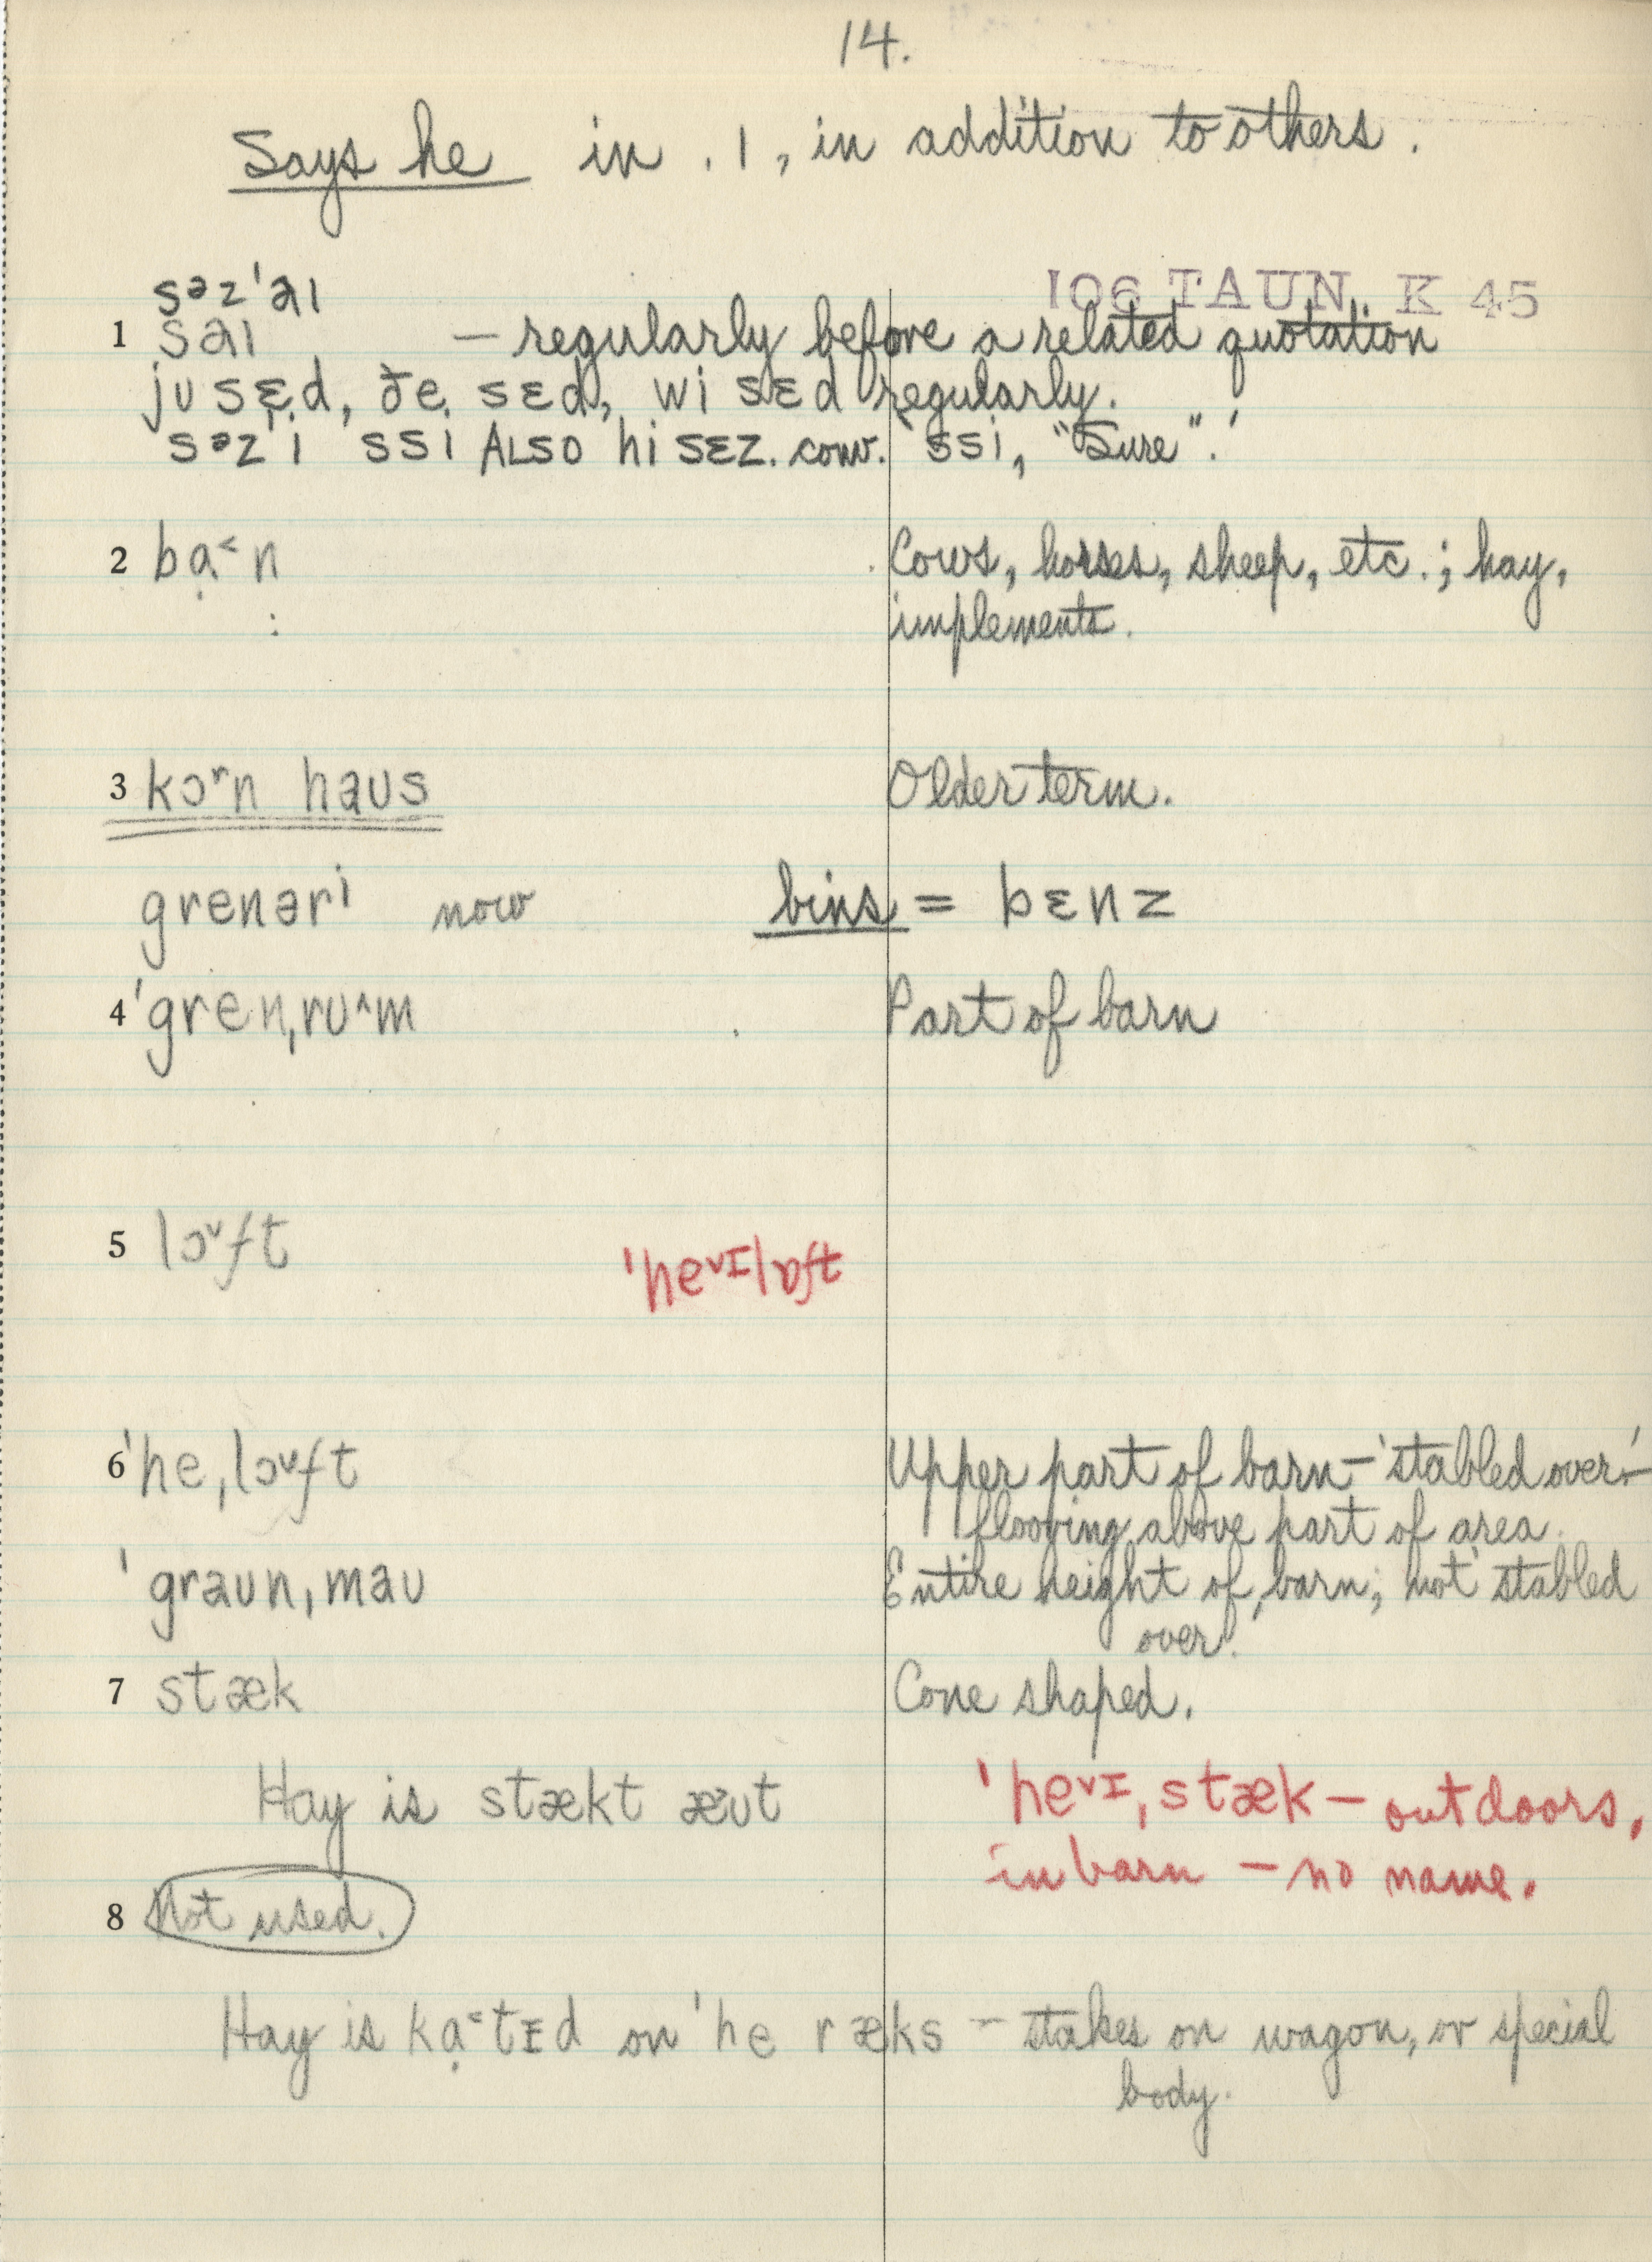 14.
Says he in .1, in addition to others.
106 TAUN. K 45
səz'aɪ
1 saɪ — regularly before a related quotation
ju sɛd, ðe sɛd, wi sɛd regularly.
səz'i ssi ALSO hi sɛz. conv. 'ssi, "Sure".'
2 bạ˂n Cows, horses, sheep, etc.; hay,
implements.
3 kɔʳn haus Older term.
grenəri now bins = bɛnz
4 'gren,ru^m Part of barn
5 lɔ˅ft 'he˅ɪlɒft
6 'he,lɔ˅ft Upper part of barn – 'stabled over' –
flooring above part of area.
'graun,mau Entire height of barn; not 'stabled
over'.
7 stæk Cone shaped.
Hay is stækt æut 'he˅ɪ,stæk – outdoors,
in barn – no name.
8 Not used.
Hay is kạ˂tɪd on 'he ræks – stakes on wagon, or special
body.